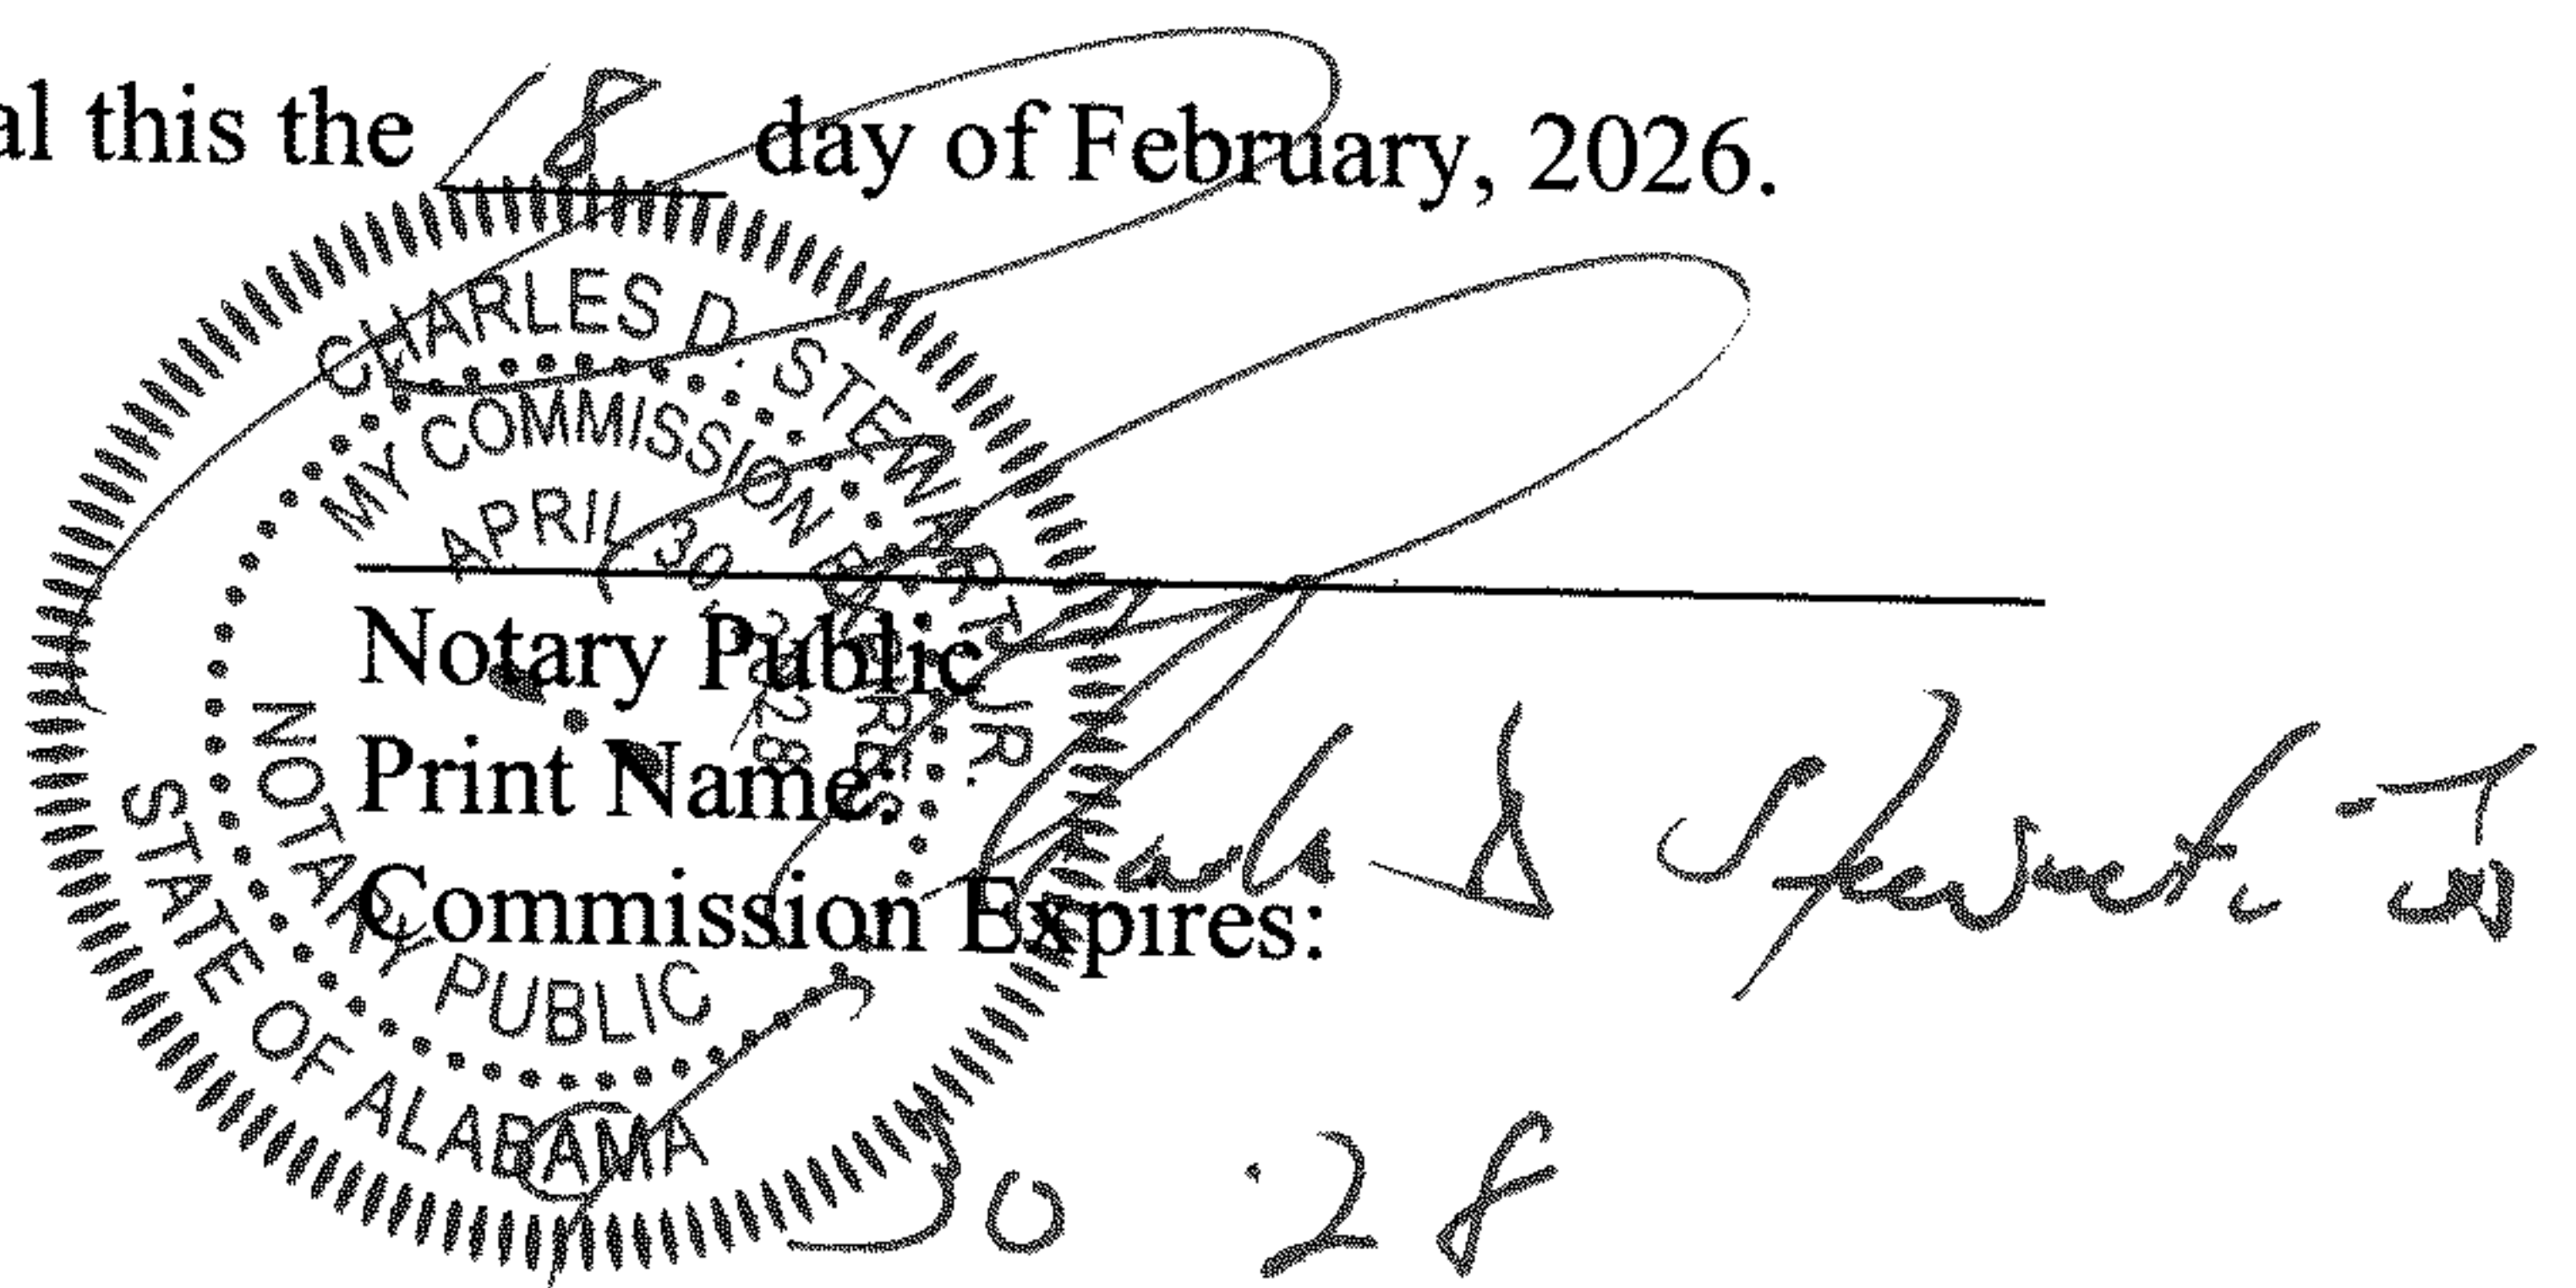 al this the 18 day of February, 2026.
CHARLES D. STEWART, JR.
MY COMMISSION EXPIRES
APRIL 30, 2028
NOTARY PUBLIC
STATE OF ALABAMA
Notary Public
Print Name: Charles D Stewart, Jr
Commission Expires:
30 28